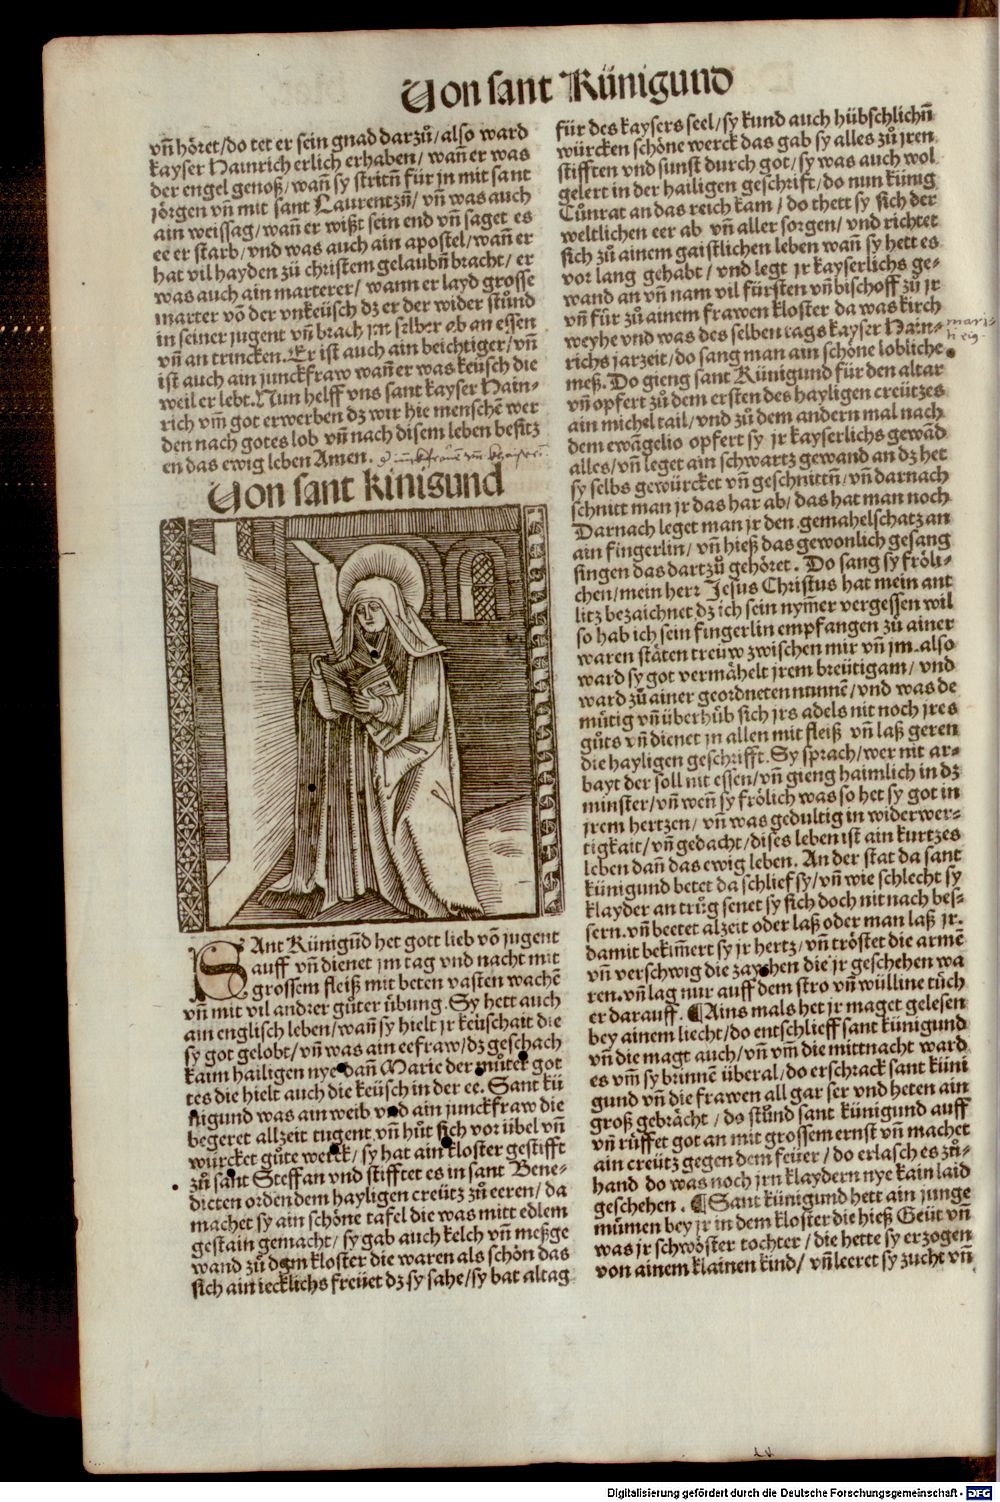 Von sant Künigund
vñ höret/do tet er sein gnad darzů/also ward
kayser Hainrich erlich erhaben/ wañ er was
der engel genoß/wañ sy stritñ für jn mit sant
jörgen vñ mit sant Laurentzñ/ vñ was auch
ain weissag/wañ er wißt sein end vñ saget es
ee er starb/vnd was auch ain apostel/wañ er
hat vil hayden zů christem gelaubñ bracht/ er
was auch ain marterer/ wann er layd grosse
marter võ der vnkeüsch dz er der wider stůnd
in seiner jugent vñ brach jm selber ab an essen
vñ an trincken. Er ist auch ain beichtiger/vñ
ist auch ain junckfraw wañ er was keüsch die
weil er lebt. Nun helff vns sant kayser Hain-
rich vm̃ got erwerben dz wir hie menschẽ wer
den nach gotes lob vñ nach disem leben besitz
en das ewig leben Amen.
Von sant kinigund
SAnt Künigũd het gott lieb võ jugent
auff vñ dienet jm tag vnd nacht mit
grossem fleiß mit beten vasten wachẽ
vñ mit vil andrer gůter übung. Sy hett auch
ain englisch leben/wañ sy hielt jr keüschait die
sy got gelobt/vñ was ain eefraw/dz geschach
kaim hailigen nye dañ Marie der můter got
tes die hielt auch die keüsch in der ee. Sant kü
nigund was ain weib vnd ain junckfraw die
begeret allzeit tugent vñ hůt sich vor übel vñ
würcket gůte werck/ sy hat ain kloster gestifft
zů sant Steffan vnd stifftet es in sant Bene-
dicten orden dem hayligen creütz zů eeren/ da
machet sy ain schöne tafel die was mitt edlem
gestain gemacht/ sy gab auch kelch vñ meßge
wand zů dem kloster die waren als schön das
sich ain iecklichs freüet dz sy sahe/sy bat altag
für des kaysers seel/sy kund auch hübschlichñ
würcken schöne werck das gab sy alles zů jren
stifften vnd sunst durch got/sy was auch wol
gelert in der hailigen geschrift/do nun künig
Cůnrat an das reich kam/ do thett sy sich der
weltlichen eer ab vñ aller sorgen/ vnd richtet
sich zů ainem gaistlichen leben wañ sy hett es
vor lang gehabt/ vnd legt jr kayserlichs ge-
wand an vñ nam vil fürsten vñ bischoff zů jr
vñ fůr zů ainem frawen kloster da was kirch
weyhe vnd was des selben tags kayser Hain-
richs jarzeit/do sang man ain schöne lobliche
meß. Do gieng sant Künigund für den altar
vñ opfert zů dem ersten des hayligen creützes
ain michel tail/vnd zů dem andern mal nach
dem ewãgelio opfert sy jr kayserlichs gewãd
alles/vñ leget ain schwartz gewand an dz het
sy selbs gewürcket vñ geschnittñ/vñ darnach
schnitt man jr das har ab/das hat man noch
Darnach leget man jr den gemahelschatz an
ain fingerlin/ vñ hieß das gewonlich gesang
singen das dartzů gehöret. Do sang sy fröli-
chen/mein herr Jesus Christus hat mein ant
litz bezaichnet dz ich sein nym̃er vergessen wil
so hab ich sein fingerlin empfangen zů ainer
waren stäten treüw zwischen mir vñ jm. also
ward sy got vermähelt jrem breütigam/ vnd
ward zů ainer geordneten nunnẽ/vnd was de
můtig vñ überhůb sich jrs adels nit noch jres
gůts vñ dienet jn allen mit fleiß vñ laß geren
die hayligen geschrifft. Sy sprach/wer nit ar-
bayt der soll nit essen/vñ gieng haimlich in dz
minster/vñ weñ sy frölich was so het sy got in
jrem hertzen/ vñ was gedultig in widerwer-
tigkait/vñ gedacht/dises leben ist ain kurtzes
leben dañ das ewig leben. An der stat da sant
künigund betet da schlief sy/vñ wie schlecht sy
klayder an trůg senet sy sich doch nit nach bes-
sern. vñ beetet alzeit oder laß oder man laß jr.
damit bekim̃ert sy jr hertz/vñ tröstet die armẽ
vñ verschwig die zaychen die jr geschehen wa
ren. vñ lag nur auff dem stro vñ wülline tůch
er darauff. ¶Ains mals het jr maget gelesen
bey ainem liecht/do entschlieff sant künigund
vñ die magt auch/vñ vm̃ die mittnacht ward
es vm̃ sy brinnẽ überal/do erschrack sant küni
gund vñ die frawen all gar ser vnd heten ain
groß gebrächt/ do stůnd sant künigund auff
vñ růffet got an mit grossem ernst vñ machet
ain creütz gegen dem feüer/ do erlasch es zů-
hand do was noch jrn klaydern nye kain laid
geschehen. ¶Sant künigund hett ain junge
můmen bey jr in dem kloster die hieß Geüt vñ
was jr schwöster tochter/ die hette sy erzogen
von ainem klainen kind/ vñ leeret sy zucht vñ
Digitalisierung gefördert durch die Deutsche Forschungsgemeinschaft - DFG